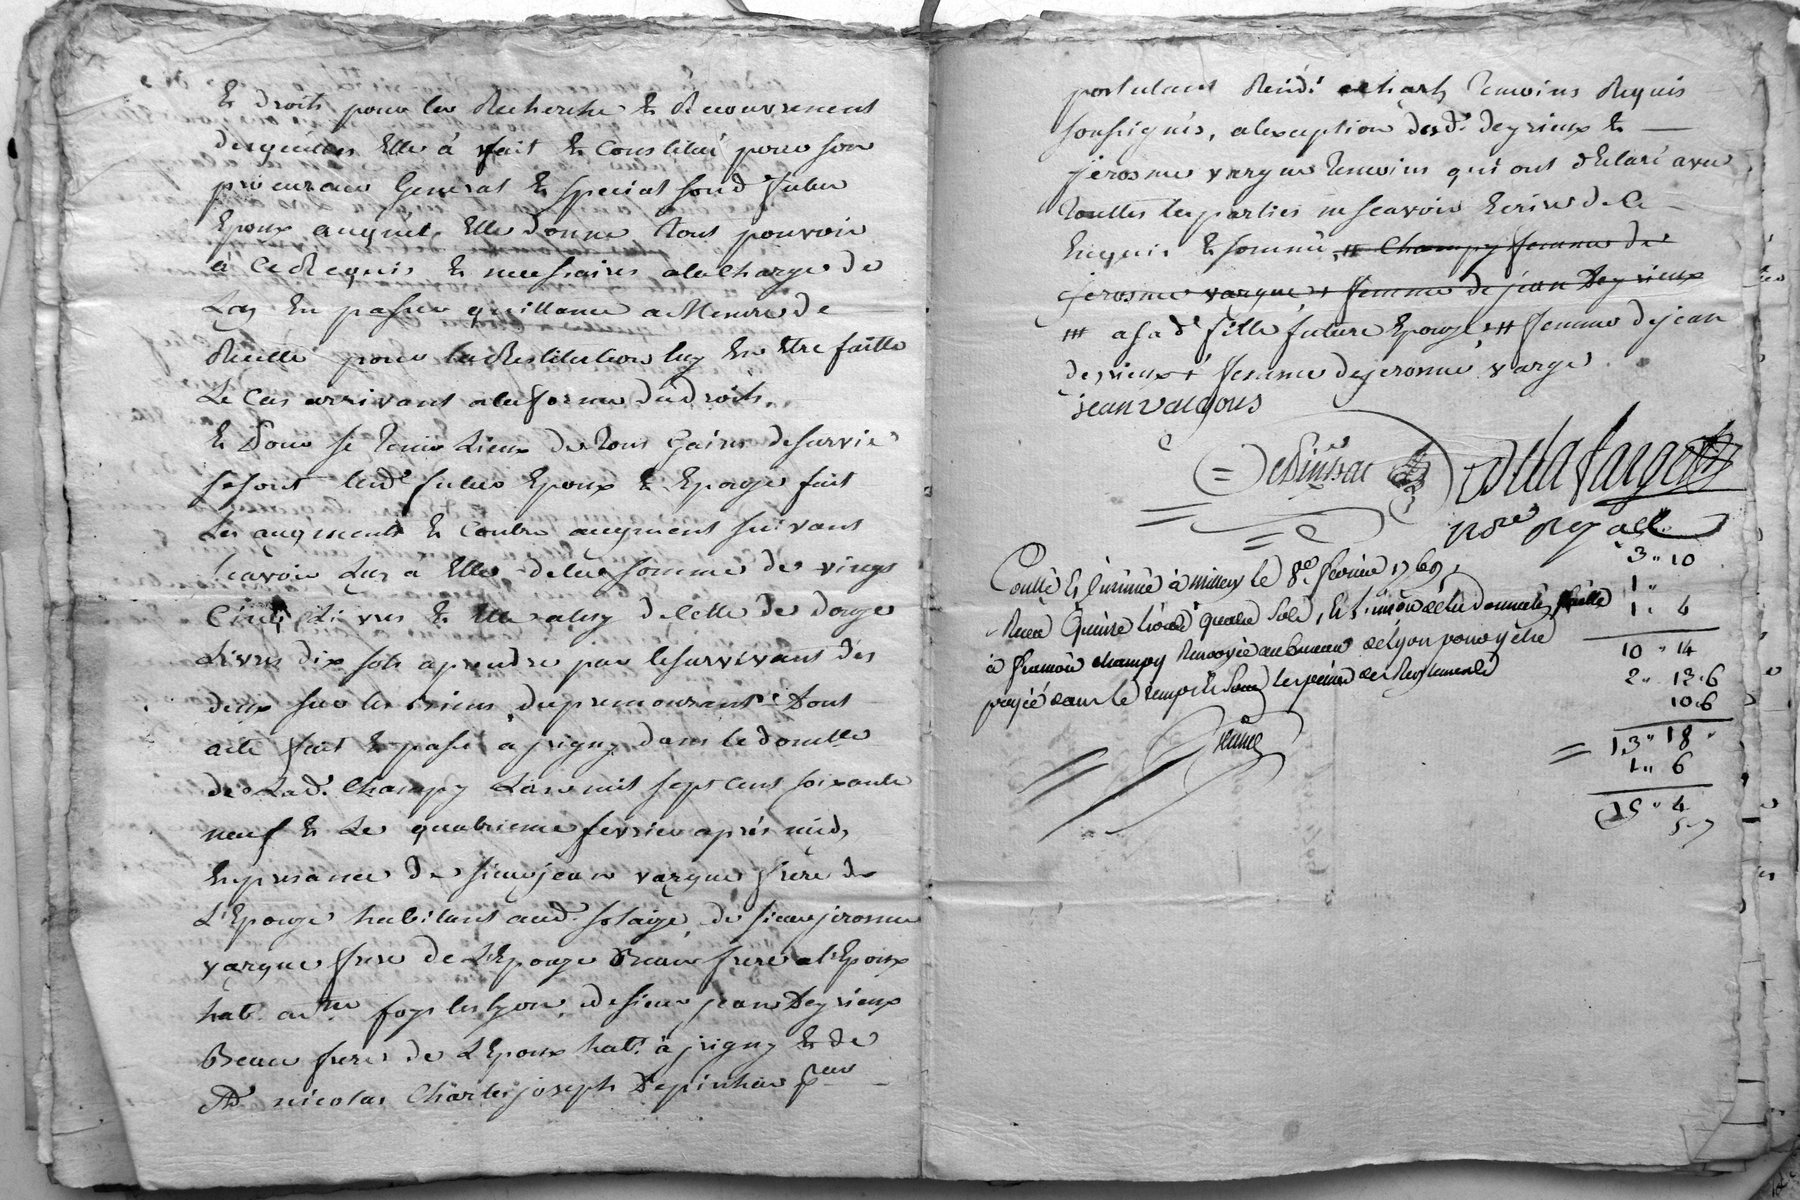 Et droits pour les Recherche Et Recouvrement
desquelles Elle à fait Et Constitué pour son
procureur General Et special sond. futur
Epoux auquel Elle donne tous pouvoir
à Ce Requis Et necessaires a la Charge de
Luy En passer quittance a Mesure de
Recette pour la Restitution luy En Etre faitte
Le Cas arrivant a la forme du droits.
Et Pour se tenir Lieux de tous Gains de survie
se sont lesd. futurs Epoux Et Epouze fait
Les augments Et Contre augment suivant
scavoir Luy a Elle de la somme de vingt
Cinq Livres Et Elle a luy de Celle de douze
Livres dix sols a prendre par le survivant des
deux sur les biens du premourant. Dont
acte fait Et passé a grigny dans le domlle
de Lad. Champy Lan mil sept Cens soixante
neuf Et Le quatrieme fevrier après midy
En presance de sieur jean vargue frere de
L'Epouze habitant aud. solaize, de sieur jerosme
vargue frere de L'Epouze Beau frere a l'Epoux
hab. a foys les lyon, de sieur jean Deyrieux
Beau frere de L'Epoux hab. à grigny Et de
Me nicolas Charles joseph
postulant Residt temoins Requis
soussignés, a lexception desd. deyrieux Et
jerosme vargue temoins qui ont déclaré avec
touttes les parties ne scavoir Ecrire de Ce
Enquis Et sommé, # Champy femme de
jerosme vargue + femme de jean Deyrieux
## a sa de fille future Epouze ## femme de jean
deyrieux + femme de jerosme varge
jean vargous
Delafarge
nore royall
Contlé Et insinué à millery le 8e fevrier 1769,
Receu Quinze livres quatre sols, Et
à champy Renvoyée au bureau de Lyon pour y être
payée dans le temps Et sous les peines des Reglements
3 " 10
1 "
1 " 4
10 " 14
2 " 13 " 6
10 " 6
13 " 18 "
1 " 6
15 " 4